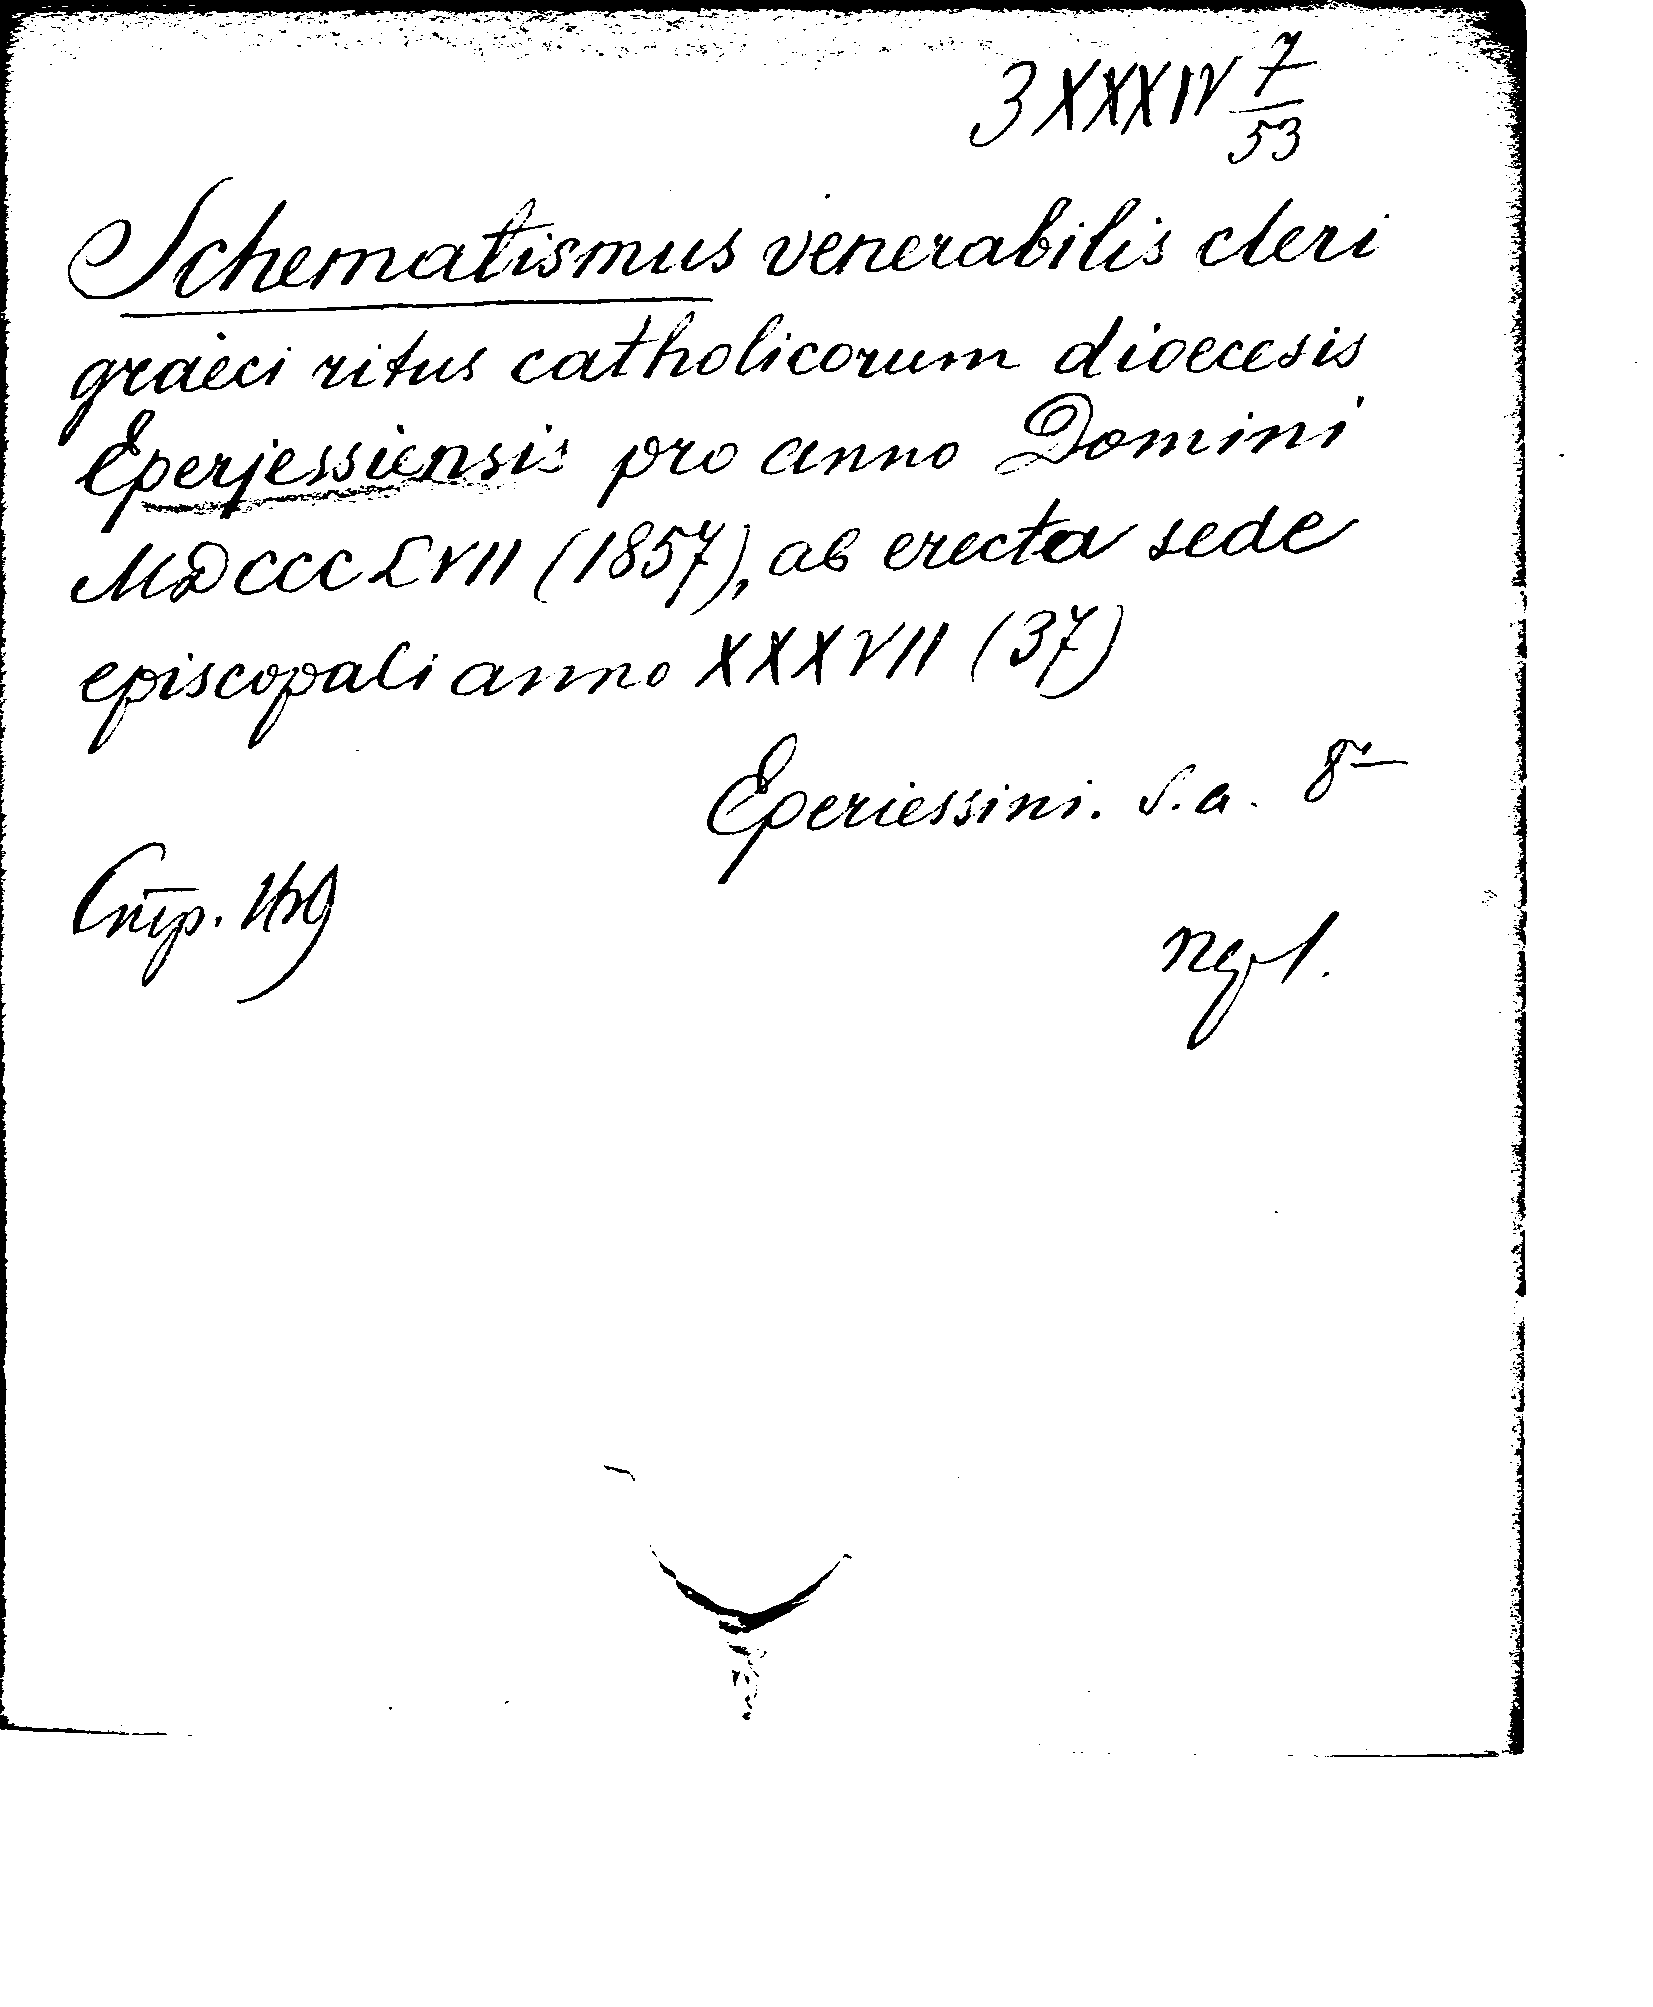 3 XXXIV 7/53
Schematismus venerabilis cleri
graeci ritus catholicorum dioecesis
Eperjessiensis pro anno Domini
MDCCCLVII (1857), ab erecta sede
episcopali anno XXXVII (37)
Eperiessini. S.a. 8°
Стр.